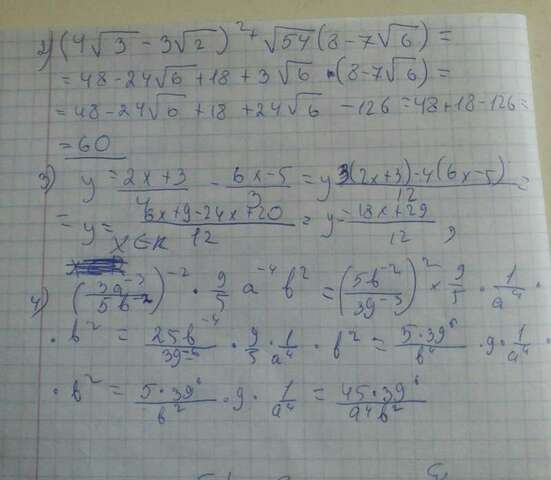 2) (4√3 - 3√2)² + √54 (8 - 7√6) =
= 48 - 24√6 + 18 + 3√6 · (8 - 7√6) =
= 48 - 24√6 + 18 + 24√6 - 126 = 48 + 18 - 126 =
= 60
3) y = (2x+3)/4 - (6x-5)/3 = y (3(2x+3) - 4(6x-5))/12 =
= y = (6x+9-24x+20)/12 = y = (-18x+29)/12 ,
x∈R
4) (3a⁻³/5b⁻²)⁻² · 9/5 a⁻⁴ b² = (5b⁻²/39⁻³)² × 9/5 · 1/a⁴ ·
· b² = 25b⁻⁴/39⁻⁶ · 9/5 · 1/a⁴ · b² = 5·39⁶/b⁴ · 9 · 1/a⁴ ·
· b² = 5·39⁶/b² · 9 · 1/a⁴ = 45·39⁶/a⁴b²